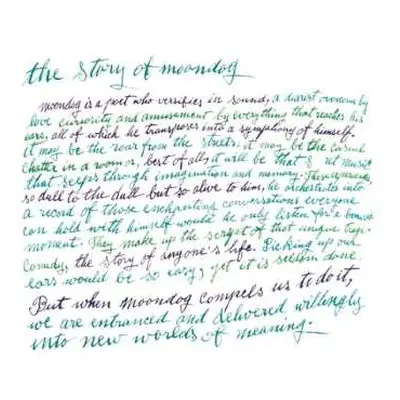 the story of moondog
moondog is a poet who versifies in sound, a diarist overcome by
love curiosity and amusement by everything that reaches his
ears, all of which he transposes into a symphony of himself.
It may be the roar from the streets, it may be the casual
chatter in a room or, best of all, it will be that music
that seeps through imagination and memory. These
so dull to the dull but so alive to him, he orchestrates into
a record of those enchanting conversations everyone
can hold with himself would he only listen for a
moment. They make up the script of that unique
Comedy, the story of anyone's life. Picking up our
ears would be so easy, yet it is seldom done.
But when moondog compels us to do it,
we are entranced and delivered willingly
into new worlds of meaning.